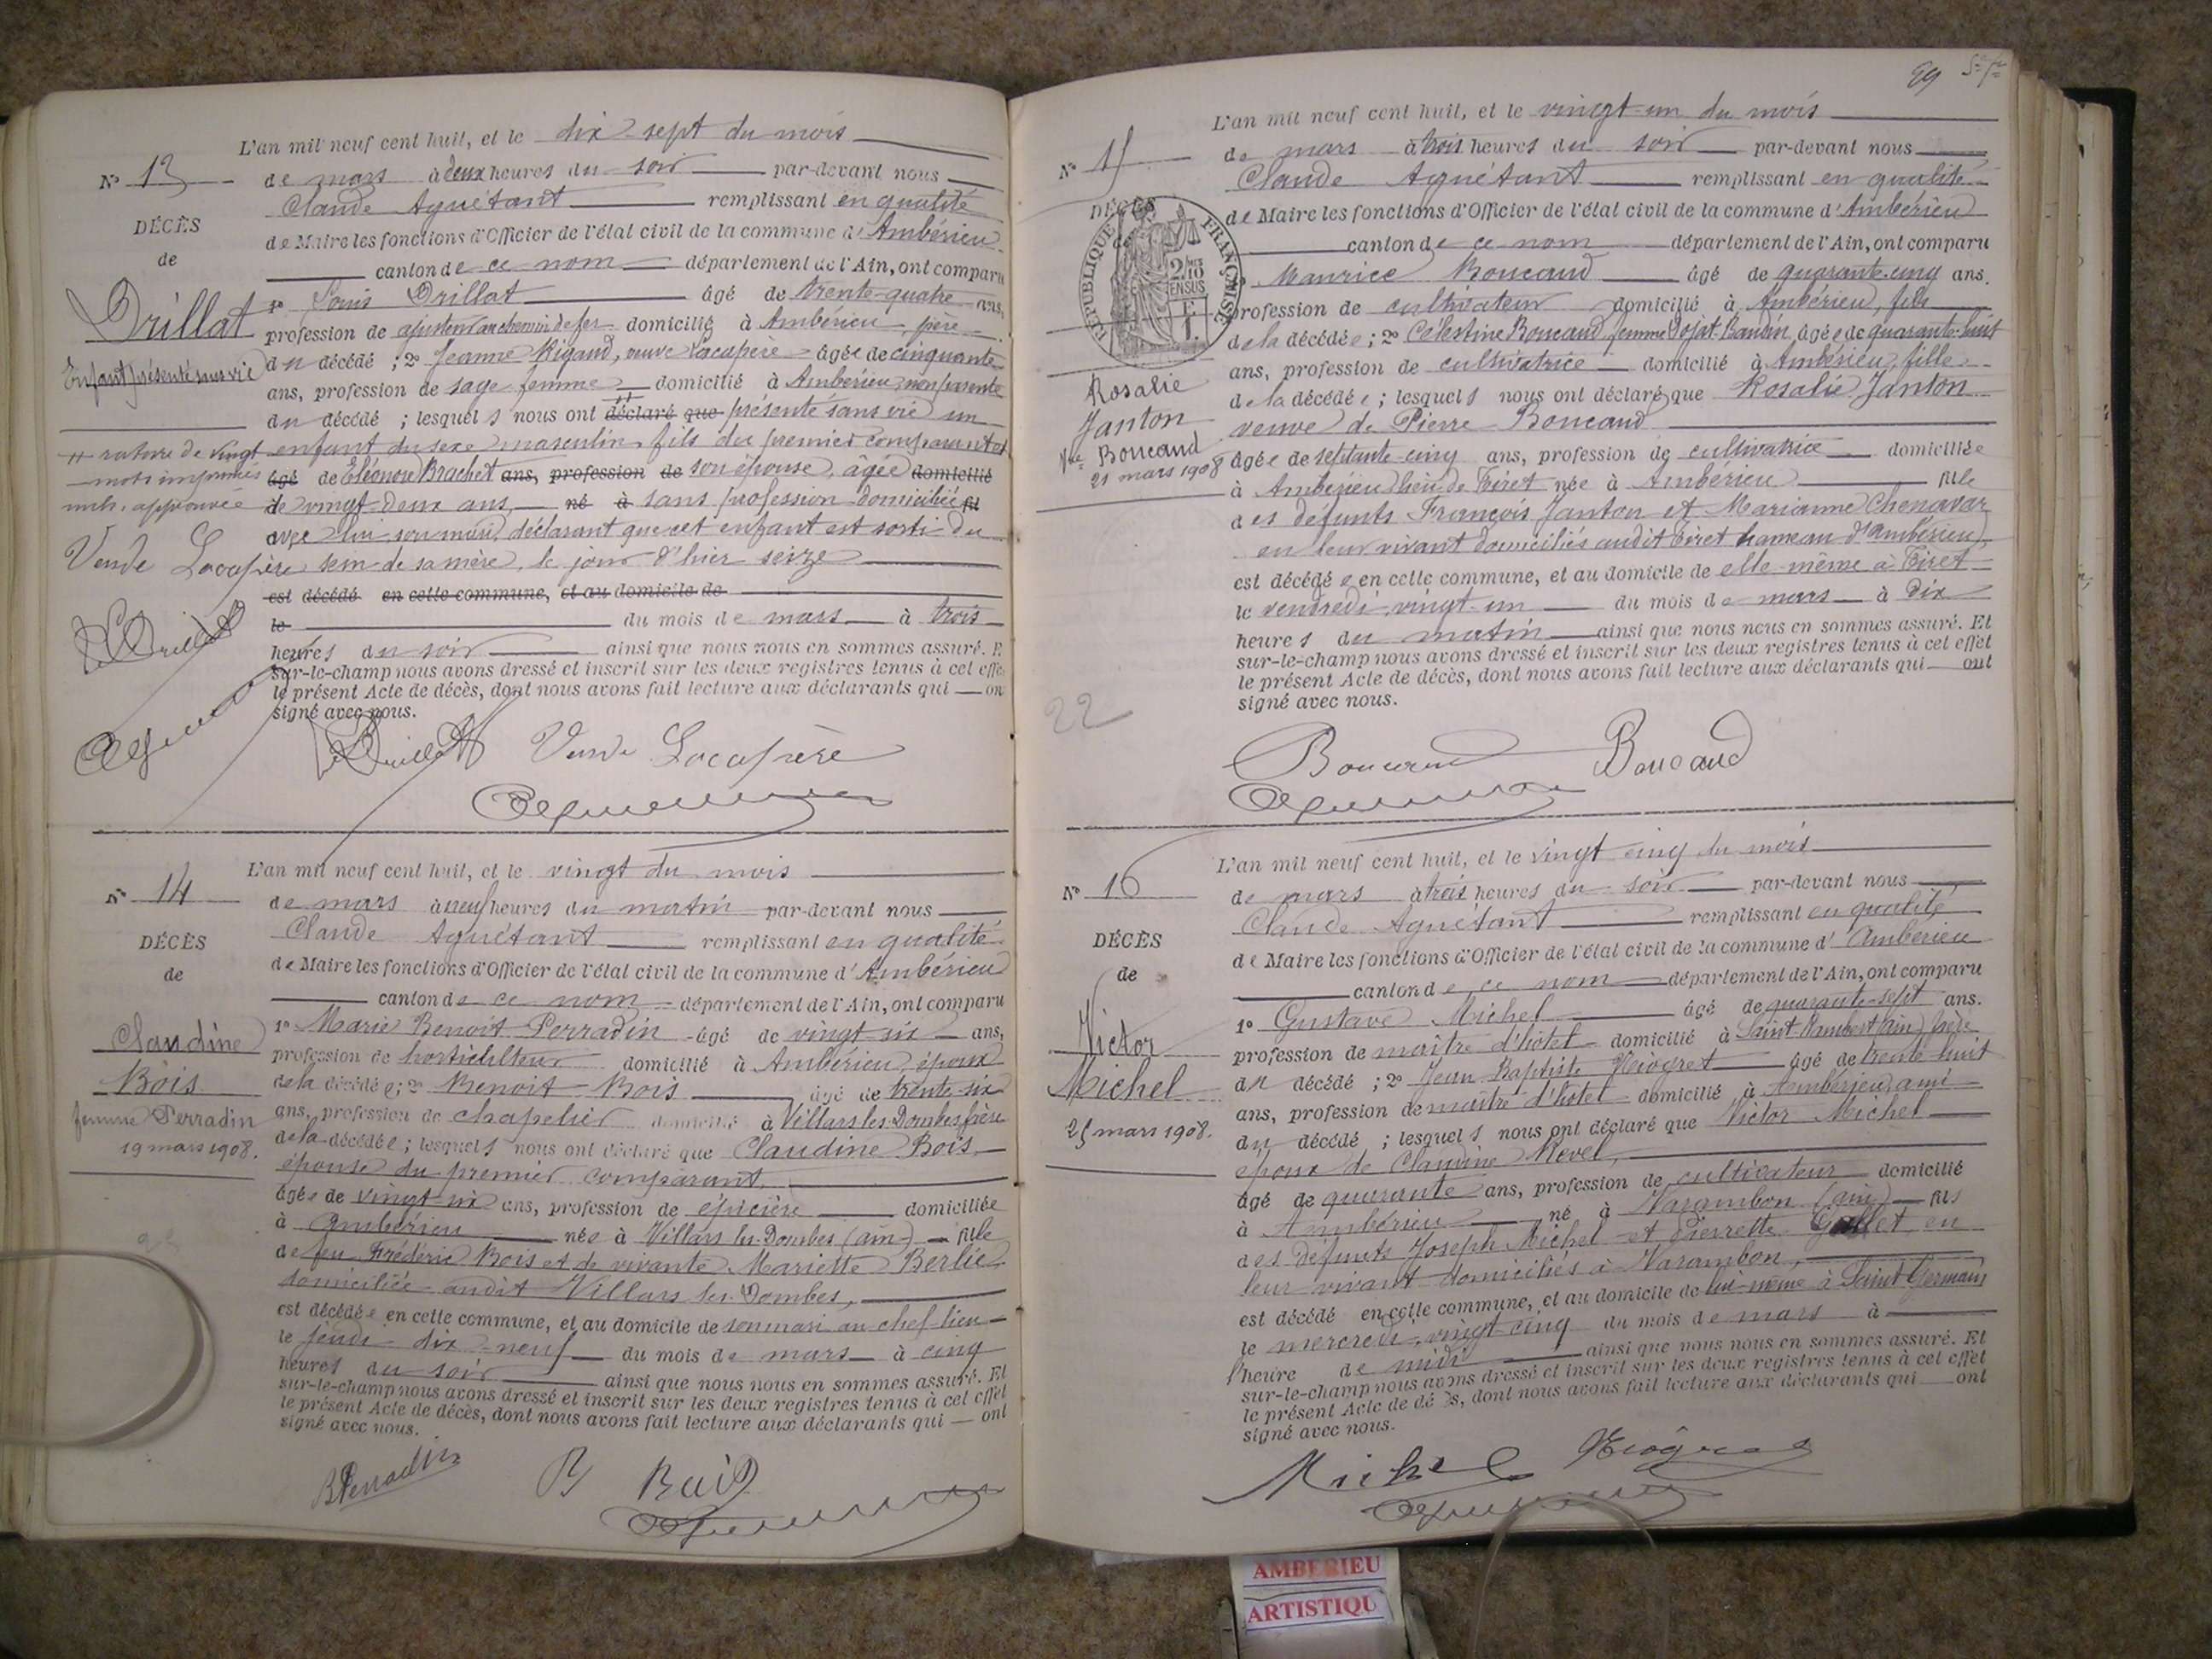 L'an mil neuf cent huit, et le dix-sept du mois
N° 13
de mars à deux heures du soir par-devant nous
Claude Aguétant remplissant en qualité
DÉCÈS
de Maire les fonctions d'Officier de l'état civil de la commune d'Ambérieu
de
canton de ce nom département de l'Ain, ont comparu
Drillat
1° Louis Drillat âgé de trente-quatre ans,
profession de ajusteur au chemin de fer domicilié à Ambérieu, père
Enfant présenté sans vie
du décédé ; 2° Jeanne Rigaud, veuve Lacapère âgée de cinquante
ans, profession de sage femme domicilié à Ambérieu, non parente
du décédé ; lesquels nous ont déclaré que présenté sans vie un
enfant du sexe masculin, fils du premier comparant et
rature de vingt
mots imprimés
nuls, approuvée
âgé de Eléonore Brachet ans, profession de son épouse, âgée domicilié
de vingt-deux ans, né à sans profession domiciliée fil
avec lui, son mari, déclarant que cet enfant est sorti du
Veuve Lacapère
sein de sa mère, le jour d'hier seize
est décédé en cette commune, et au domicile de
LDrillat
le du mois de mars à trois
heures du soir ainsi que nous nous en sommes assuré. E
sur-le-champ nous avons dressé et inscrit sur les deux registres tenus à cet effe
le présent Acte de décès, dont nous avons fait lecture aux déclarants qui on
signé avec nous.
LDrillat Veuve Lacapère
L'an mil neuf cent huit, et le vingt du mois
N° 14
de mars à neuf heures du matin par-devant nous
Claude Aguétant remplissant en qualité
DÉCÈS
de Maire les fonctions d'Officier de l'état civil de la commune d'Ambérieu
de
canton de ce nom département de l'Ain, ont comparu
1° Marie Benoit Perradin âgé de vingt-six ans,
Claudine
profession de horticulteur domicilié à Ambérieu, époux
Bois
de la décédée; 2° Benoit Bois âgé de trente-six
femme Perradin
ans, profession de chapelier domicilié à Villars les Dombes, frère
19 mars 1908.
de la décédée ; lesquels nous ont déclaré que Claudine Bois
épouse du premier comparant
âgée de vingt-six ans, profession de épicière domiciliée
à Ambérieu née à Villars les Dombes (ain) fille
de feu Frédéric Bois et de vivante Mariette Berlie
domiciliée audit Villars les Dombes,
est décédée en cette commune, et au domicile de son mari au chef lieu
le jeudi dix-neuf du mois de mars à cinq
heures du soir ainsi que nous nous en sommes assuré. Et
sur-le-champ nous avons dressé et inscrit sur les deux registres tenus à cet effet
le présent Acte de décès, dont nous avons fait lecture aux déclarants qui ont
signé avec nous.
BPerradin B Bois
89
L'an mil neuf cent huit, et le vingt-un du mois
N° 15
de mars à trois heures du soir par-devant nous
Claude Aguétant remplissant en qualité
DÉCÈS
RÉPUBLIQUE FRANÇAISE
de Maire les fonctions d'Officier de l'état civil de la commune d'Ambérieu
canton de ce nom département de l'Ain, ont comparu
Maurice Boucaud âgé de quarante-cinq ans.
profession de cultivateur domicilié à Ambérieu, fils
de la décédée ; 2° Célestine Boucaud femme Dojat-Bandin, âgée de quarante-huit
ans, profession de cultivatrice domicilié à Ambérieu, fille
Rosalie
Janton
Vve Boucaud
21 mars 1908
de la décédée ; lesquels nous ont déclaré que Rosalie Janton
veuve de Pierre Boucaud
âgée de septante-cinq ans, profession de cultivatrice domiciliée
à Ambérieu lieu de Tiret née à Ambérieu fille
des défunts François Janton et Marianne Chenavaz
en leur vivant domiciliés audit Tiret hameau d'Ambérieu,
est décédée en cette commune, et au domicile de elle-même à Tiret
le vendredi, vingt-un du mois de mars à dix
heures du matin ainsi que nous nous en sommes assuré. Et
sur-le-champ nous avons dressé et inscrit sur les deux registres tenus à cet effet
le présent Acte de décès, dont nous avons fait lecture aux déclarants qui ont
signé avec nous.
22
Boucaud Boucaud
L'an mil neuf cent huit, et le vingt-cinq du mois
N° 16
de mars à trois heures du soir par-devant nous
Claude Aguétant remplissant en qualité
DÉCÈS
de Maire les fonctions d'Officier de l'état civil de la commune d'Ambérieu
de
canton de ce nom département de l'Ain, ont comparu
1° Gustave Michel âgé de quarante-sept ans.
Victor
profession de maître d'hôtel domicilié à Saint Rambert (ain) frère
Michel
du décédé ; 2° Jean Baptiste Neiogret âgé de trente-huit
ans, profession de maître d'hôtel domicilié à Ambérieu, ami
25 mars 1908.
du décédé ; lesquels nous ont déclaré que Victor Michel
époux de Claudine Revel,
âgé de quarante ans, profession de cultivateur domicilié
à Ambérieu né à Varambon (ain) fils
des défunts Joseph Michel et Pierrette Gallet, en
leur vivant domiciliés à Varambon,
est décédé en cette commune, et au domicile de lui-même à Saint Germain
le mercredi, vingt-cinq du mois de mars à
l'heure de midi ainsi que nous nous en sommes assuré. Et
sur-le-champ nous avons dressé et inscrit sur les deux registres tenus à cet effet
le présent Acte de décès, dont nous avons fait lecture aux déclarants qui ont
signé avec nous.
Michel
AMBERIEU
ARTISTIQU